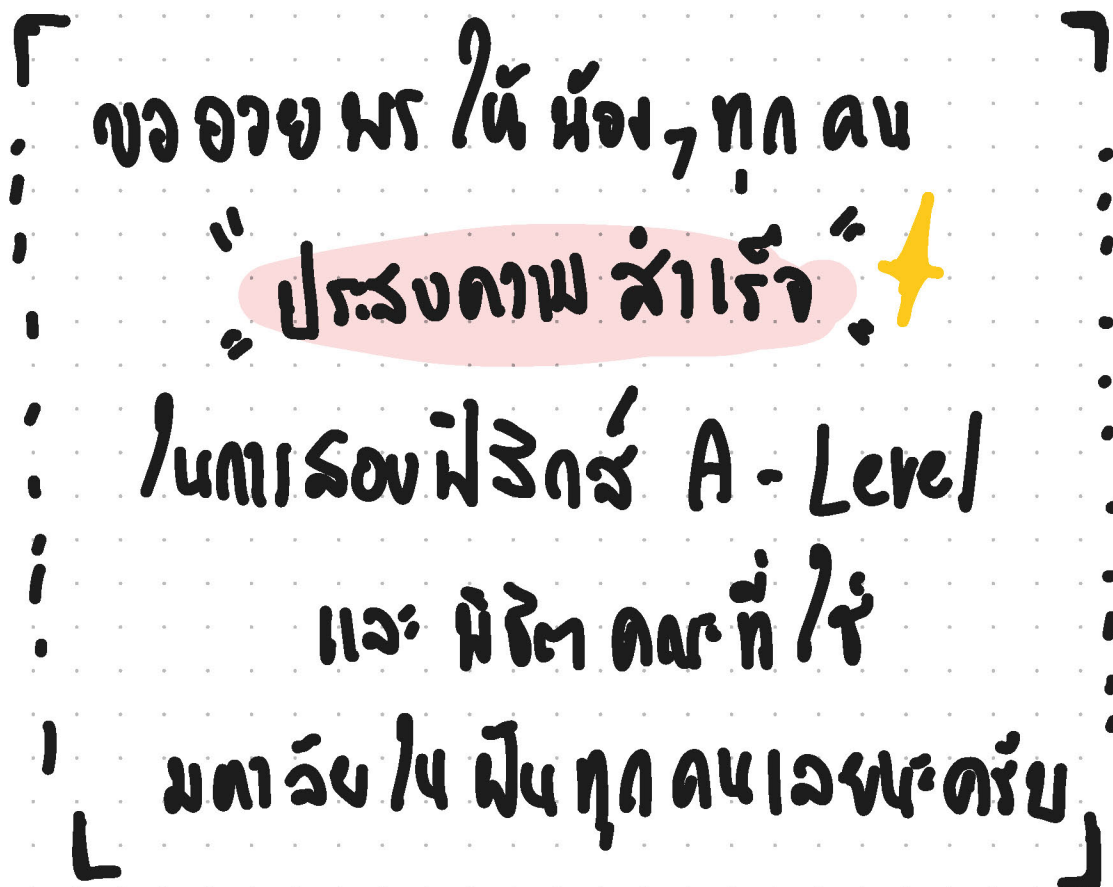 ขออวยพรให้น้องๆทุกคน
"ประสบความสำเร็จ"
ในการสอบฟิสิกส์ A-Level
และพิชิตคณะที่ใช่
มหาลัยในฝันทุกคนเลยนะครับ